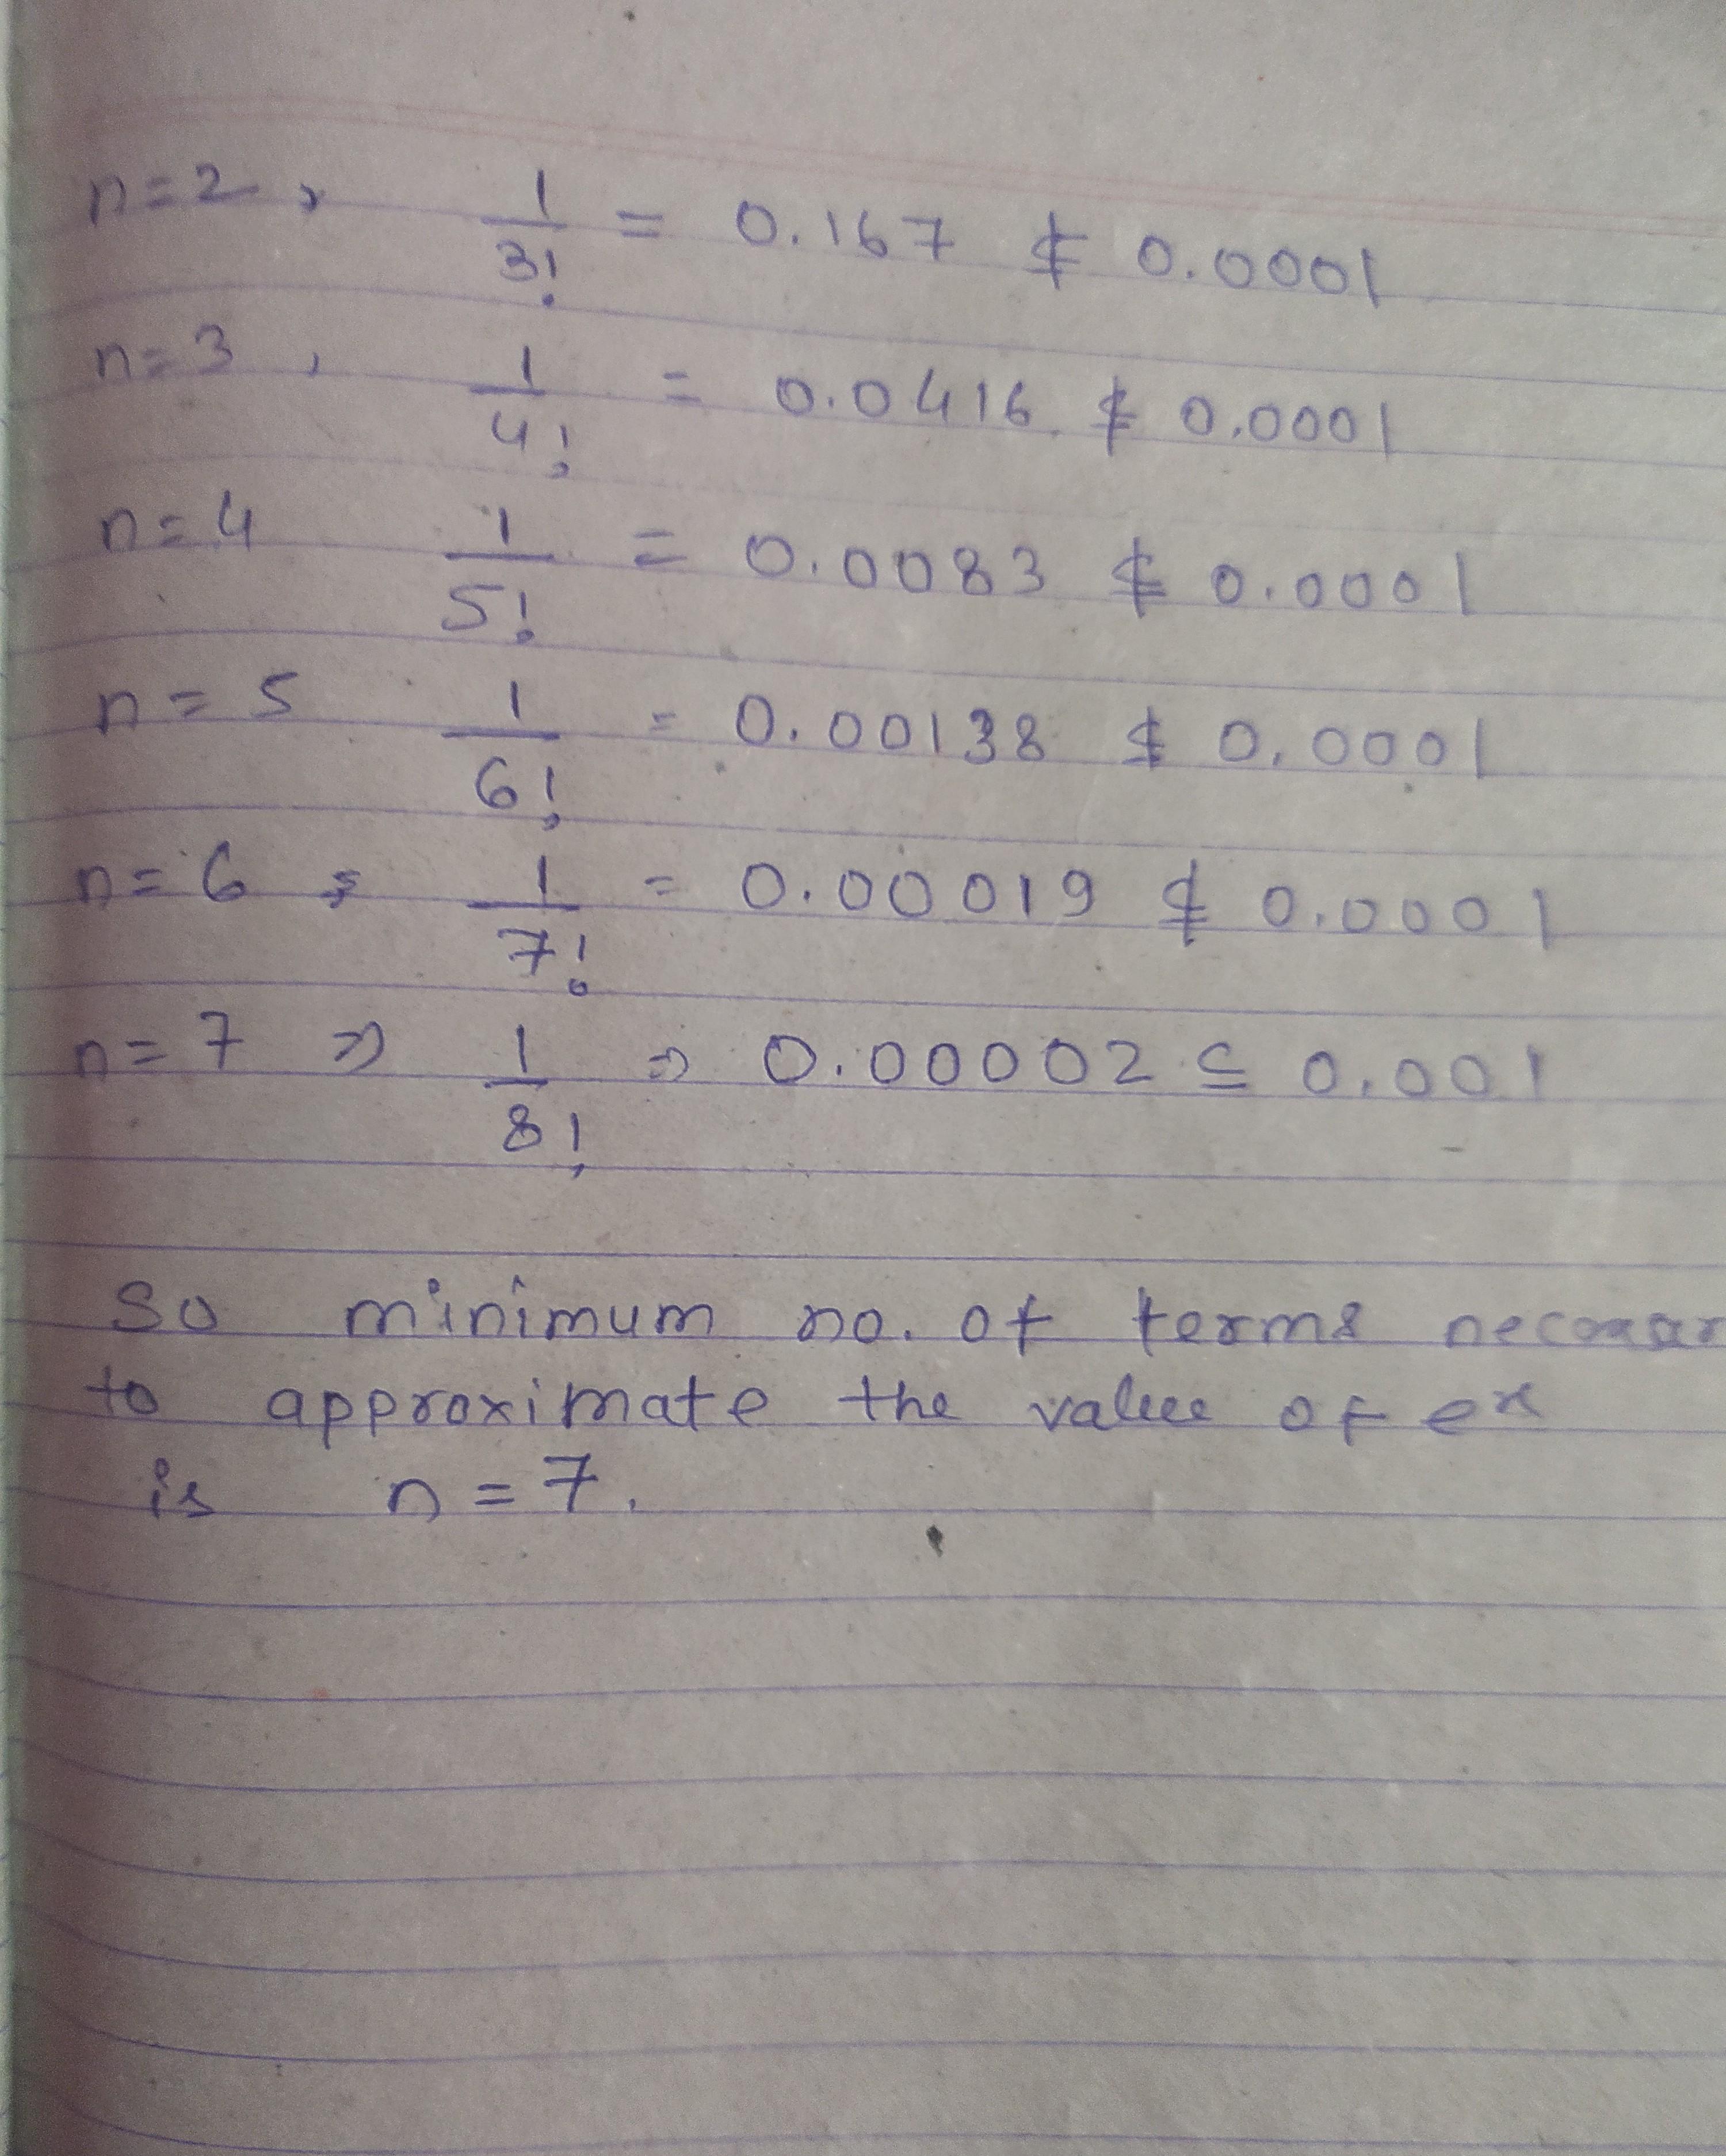 n=2, 1/3! = 0.167 ≰ 0.0001
n=3, 1/4! = 0.0416 ≰ 0.0001
n=4 1/5! = 0.0083 ≰ 0.0001
n=5 1/6! = 0.00138 ≰ 0.0001
n=6, 1/7! = 0.00019 ≰ 0.0001
n=7 ⇒ 1/8! ⇒ 0.00002 ≤ 0.001
So minimum no. of terms
to approximate the value of e^x
is n=7.